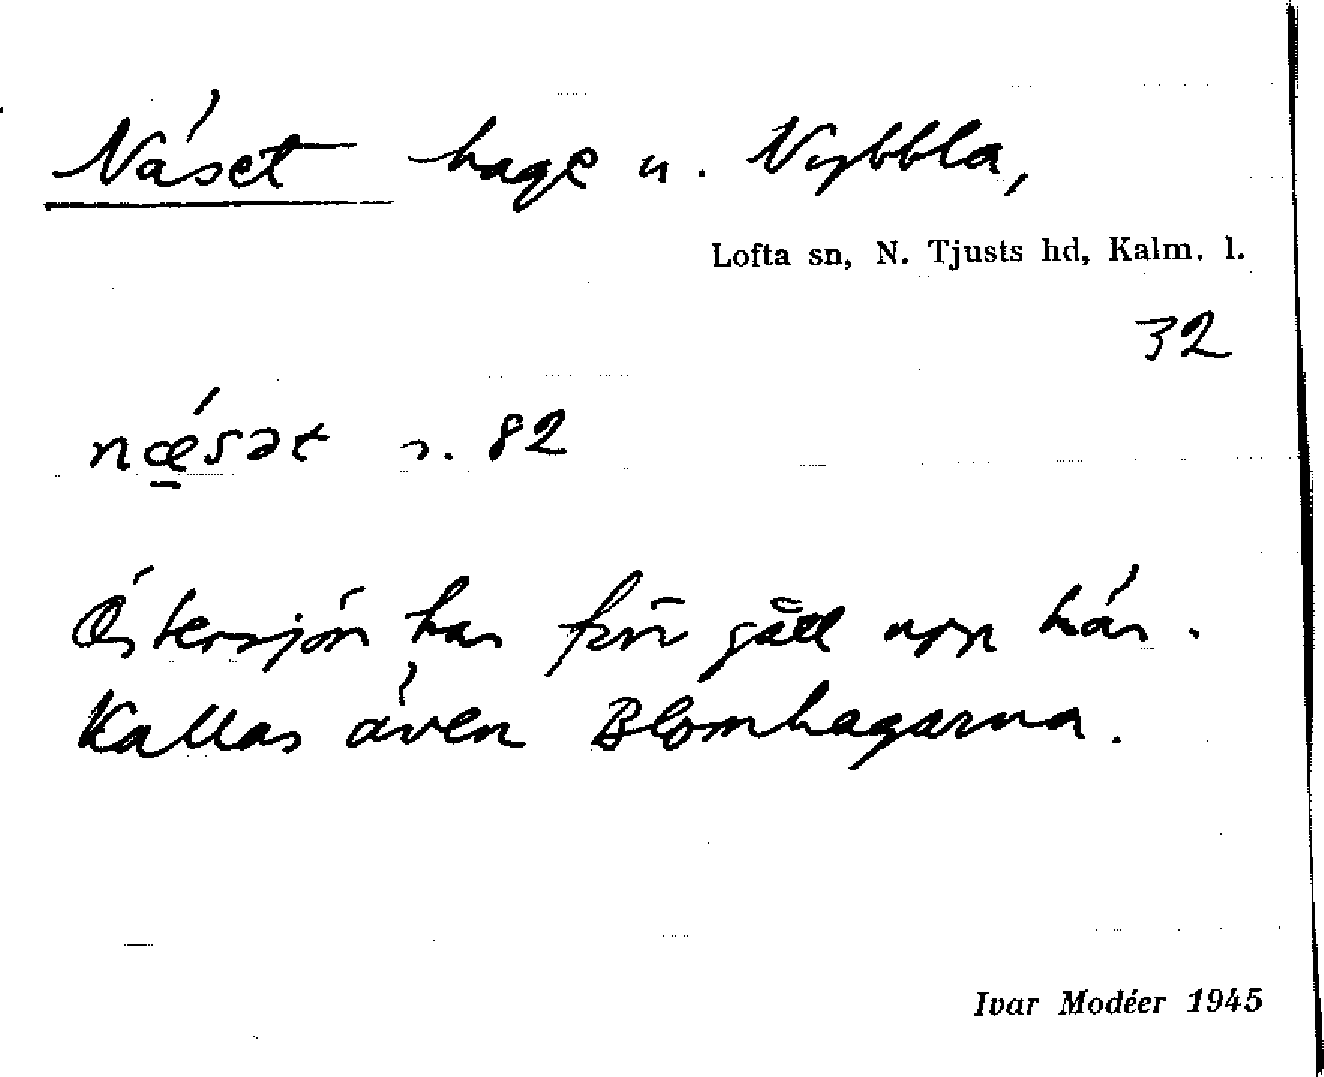 Näset hage u. Nybbla,
Lofta sn, N. Tjusts hd, Kalm. l.
32
nǽ̱sət s. 82
Östersjön har förr gått upp här.
Kallas även Blomhagarna.
Ivar Modéer 1945